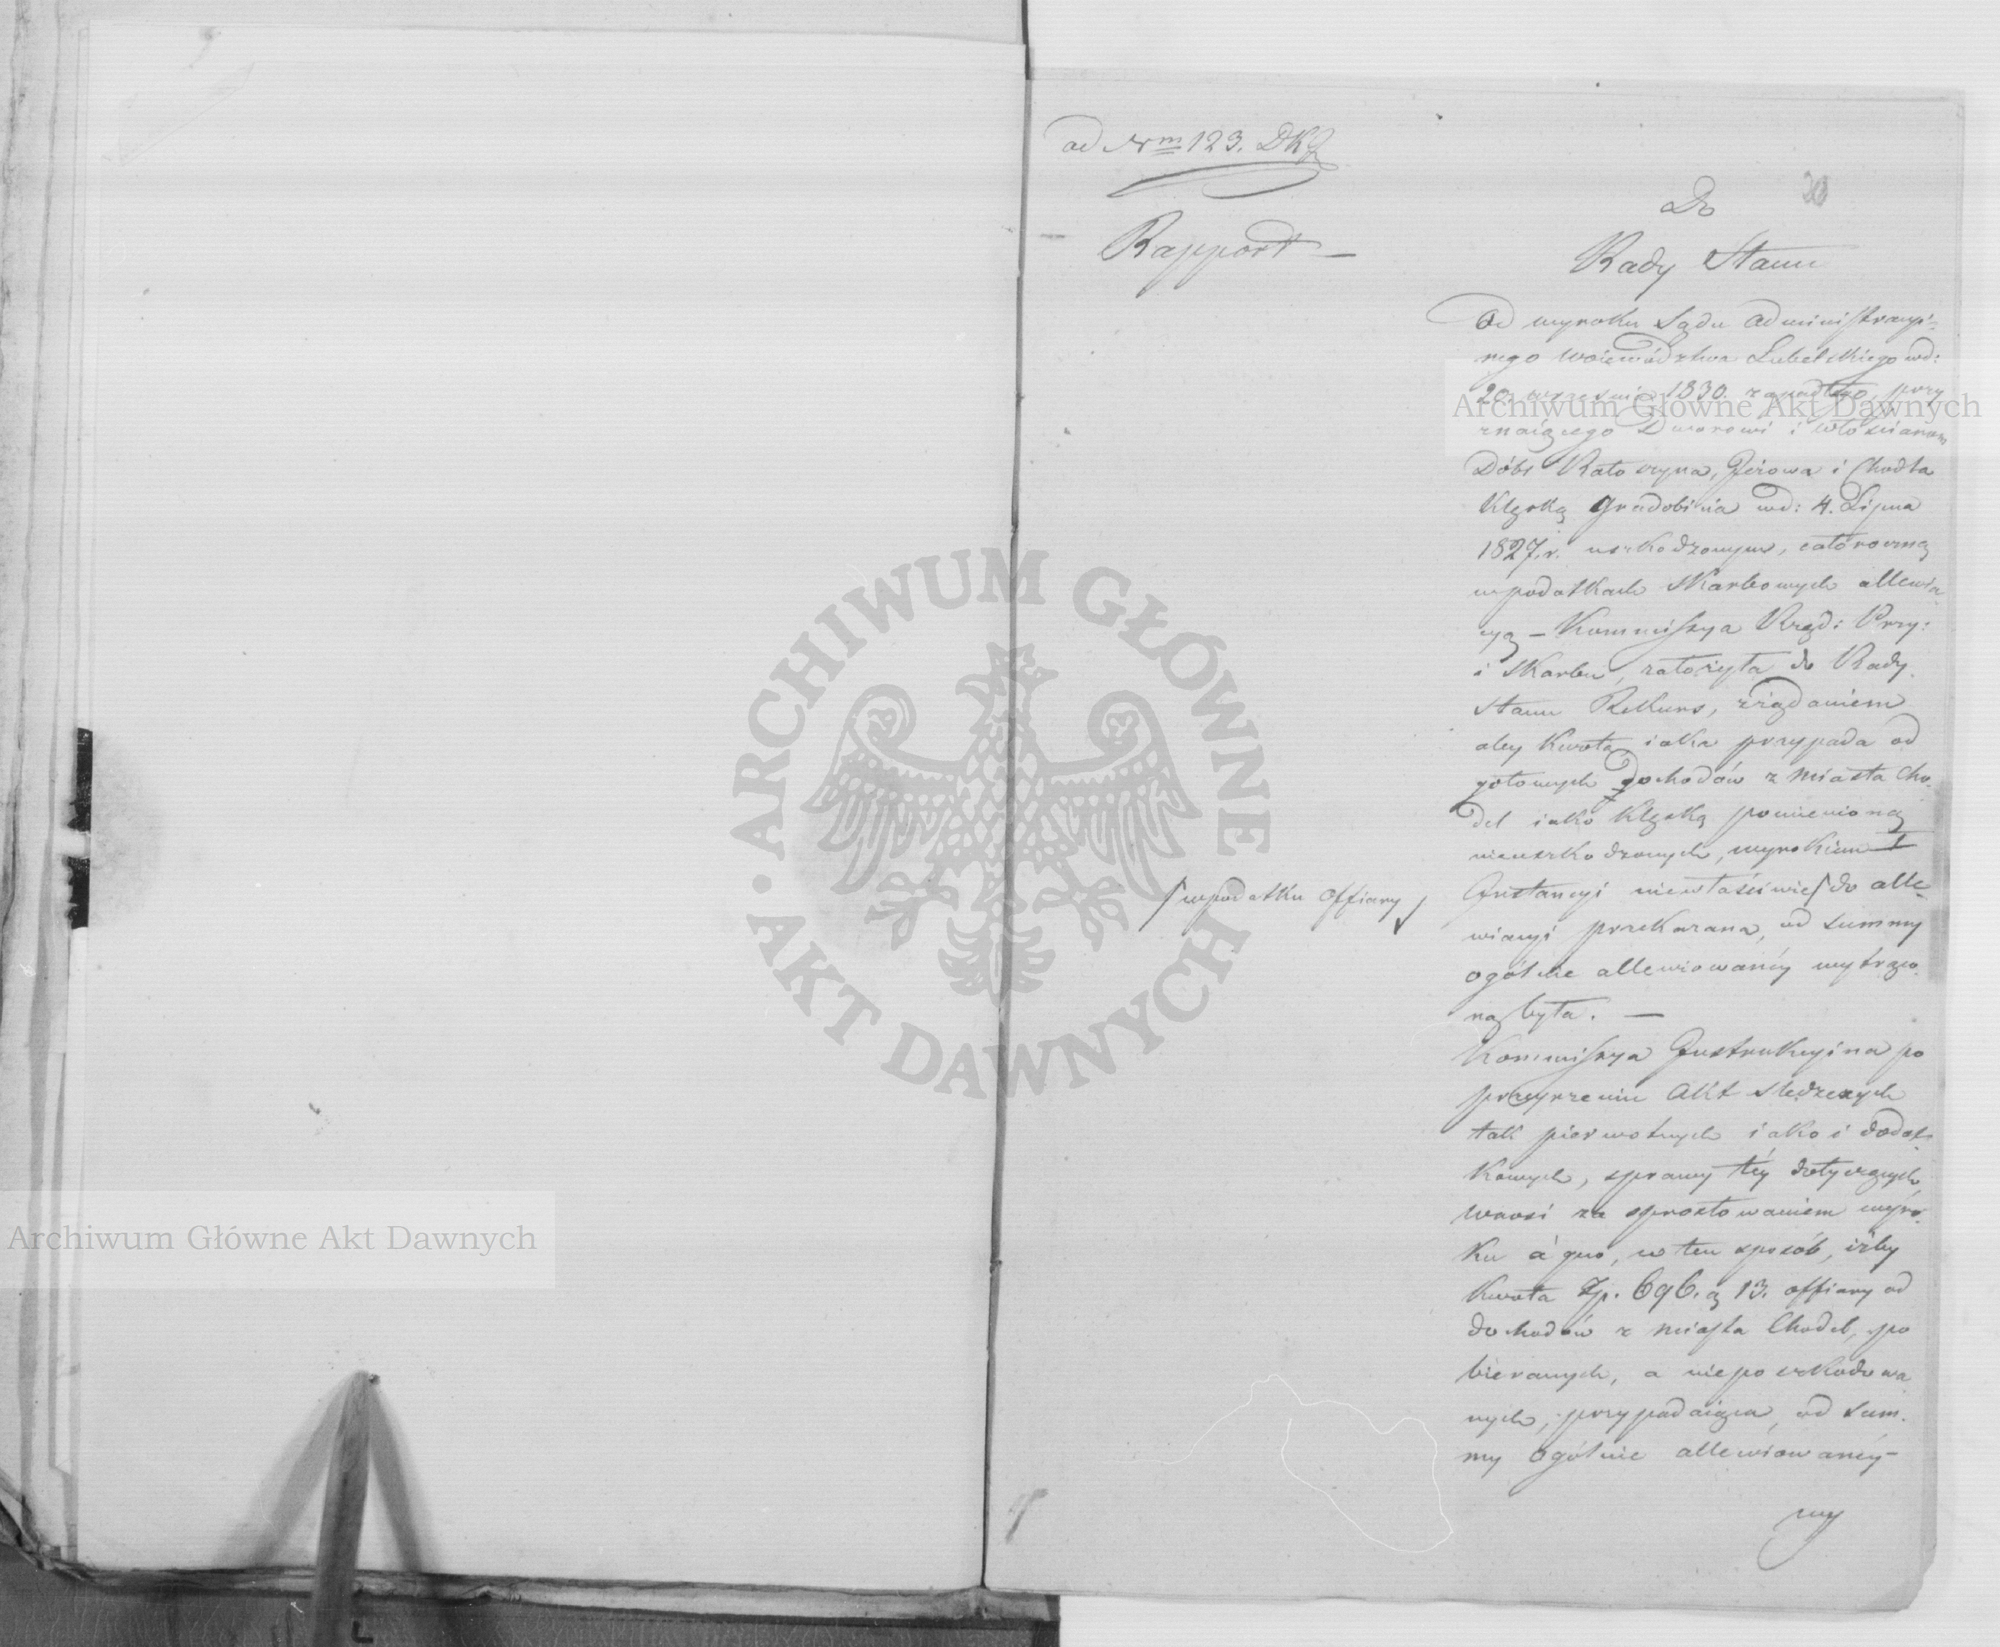 ad Nrm 123. DKJ
Rapport —
30
Do
Rady Stanu
Od wyroku Sądu Administracyi-
nego Woiewództwa Lubelskiego wd:
20. września 1830. zapadłego, przy
znaiącego Dworowi i włościanom
Dóbr Ratoszyna, Gérowa i Chodla
klęską gradobicia wd: 4. Lipca
1827. r. uszkodzonym, całoroczną
w podatkach Skarbowych allewia
cyą — Kommissya Rząd: Przy:
i Skarbu, założyła do Rady
Stanu Rekurs, z żądaniem
aby kwota iaka przypada od
gotowych Dochodów z miasta Cho-
del iako klęską pomienioną
nieuszkodzonych, wyrokiem I
Instancyi niewłaściwie / do alle-
/ w podatku offiary /
wiacyi przekazana, od summy
ogólnie allewiowanéy wytrąco-
ną była. —
Kommissya Instrukcyina po
przeyrzeniu Akt śledczych
tak pierwotnych iako i dodat-
kowych, sprawy téy dotyczących
wnosi za sprostowaniem wyro-
ku à quo, w ten sposób, iżby
kwota Zp. 696. g 13. offiary od
dochodów z miasta Chodel, po
bieranych, a nieposzkodowa
nych, przypadaiąca, od sum-
my ogólnie allewiowanéy —
wy
Archiwum Główne Akt Dawnych
Archiwum Główne Akt Dawnych
ARCHIWUM GŁÓWNE
AKT DAWNYCH